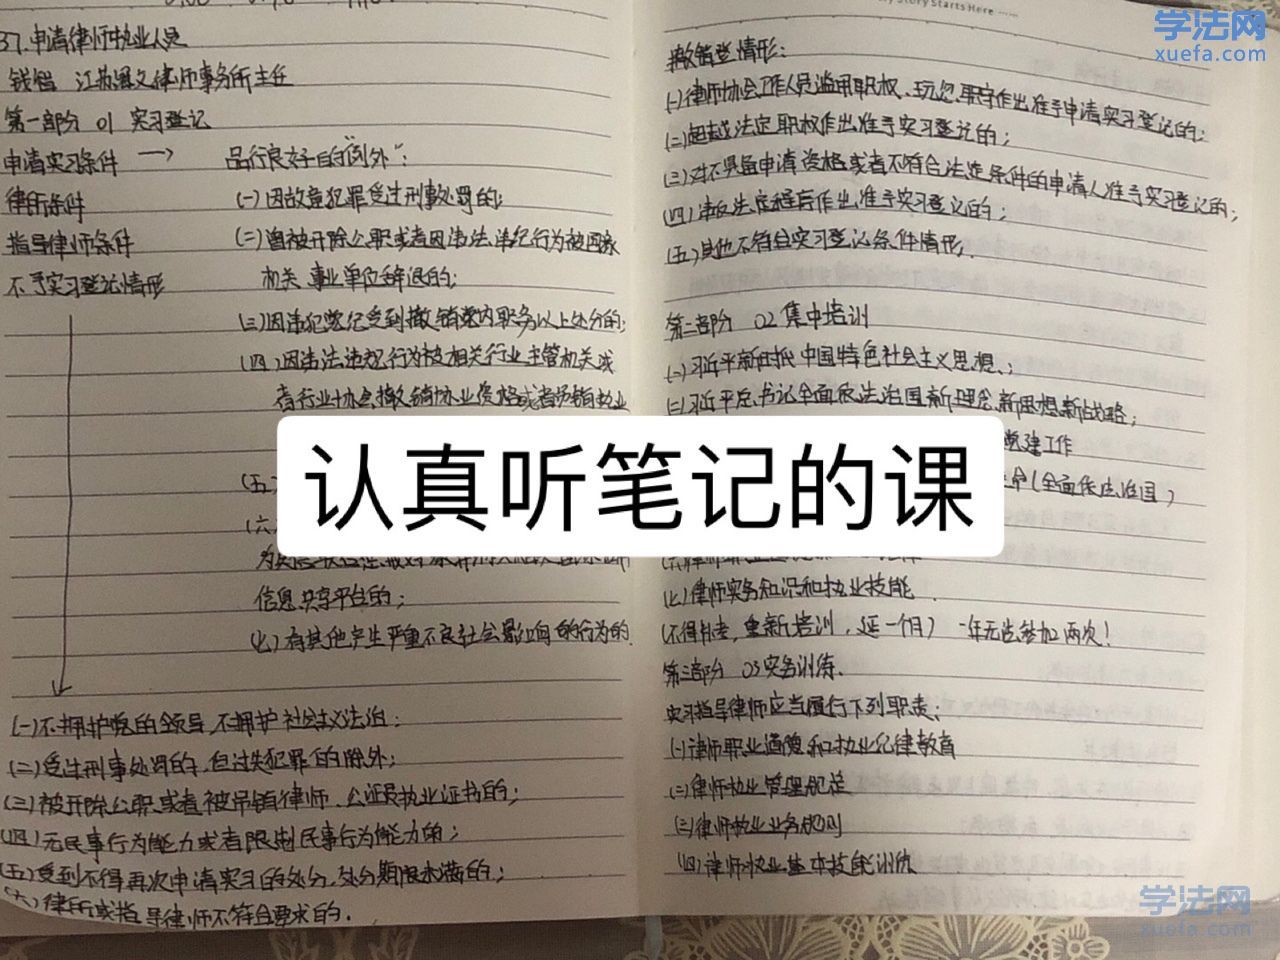 37.申请律师执业人员
钱智 江苏漫文律师事务所主任
第一部分 01 实习登记
申请实习条件 → 品行良好的"例外":
律所条件
(一)因故意犯罪受过刑事处罚的;
指导律师条件
(二)曾被开除公职或者因违法、违纪行为被国家
不予实习登记情形
机关、事业单位辞退的;
(三)因违犯党纪受到撤销党内职务以上处分的;
(四)因违法违规行为被相关行业主管机关或
者行业协会撤销执业资格或者吊销执业
(五)
(六)
信息共享平台的;
(七)有其他产生严重不良社会影响的行为的.
(一)不拥护党的领导,不拥护社会主义法治;
(二)受过刑事处罚的,但过失犯罪的除外;
(三)被开除公职或者被吊销律师、公证员执业证书的;
(四)无民事行为能力或者限制民事行为能力的;
(五)受到不得再次申请实习的处分,处分期限未满的;
(六)律所或指导律师不符合要求的.
My Story Starts Here
撤销登情形:
(一)律师协会工作人员滥用职权、玩忽职守作出准予申请实习登记的;
(二)超越法定职权作出准予实习登记的;
(三)对不具备申请资格或者不符合法定条件的申请人准予实习登记的;
(四)违反法定程序作出准予实习登记的;
(五)其他不符合实习登记条件情形.
第二部分 02 集中培训
(一)习近平新时代中国特色社会主义思想;
(二)习近平总书记全面依法治国新理念新思想新战略;
党建工作
命(全面依法治国)
(七)律师实务知识和执业技能
(不得补考,重新培训,延一个月) 一年无法参加两次!
第三部分 03实务训练.
实习指导律师应当履行下列职责;
(一)律师职业道德和执业纪律教育
(二)律师执业管理规定
(三)律师执业业务规则
(四)律师执业基本技能训练
认真听笔记的课
学法网
xuefa.com
学法网
xuefa.com